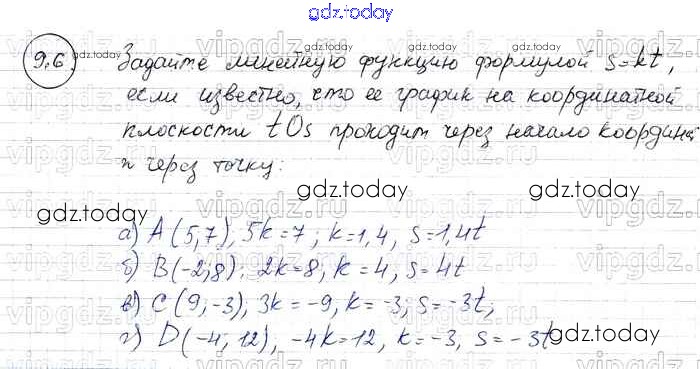 gdz.today
9.6. Задайте линейную функцию формулой s=kt,
если известно, что ее график на координатной
плоскости tOs проходит через начало координа
и через точку:
gdz.today
gdz.today
gdz.today
а) A(5,7), 5k=7; k=1,4, s=1,4t
б) B(-2;8), 2k=8, k=4, s=4t
в) C(9,-3), 3k=-9, k=-3; s=-3t,
г) D(-4; 12), -4k=12, k=-3, s=-3t
gdz.today